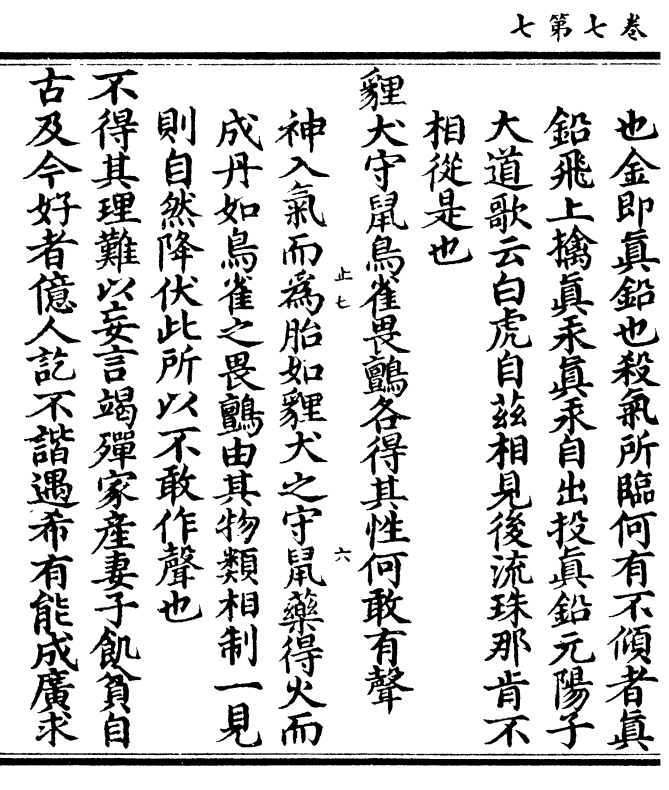 卷七第七
也金即眞鉛也殺氣所臨何有不傾者眞
鉛飛上擒眞汞眞汞自出投眞鉛元陽子
大道歌云白虎自茲相見後流珠那肯不
相從是也
貍犬守鼠鳥雀畏鸇各得其性何敢有聲
止七
六
神入氣而爲胎如貍犬之守鼠藥得火而
成丹如鳥雀之畏鸇由其物類相制一見
則自然降伏此所以不敢作聲也
不得其理難以妄言竭殫家產妻子飢貧自
古及今好者億人訖不諧遇希有能成廣求